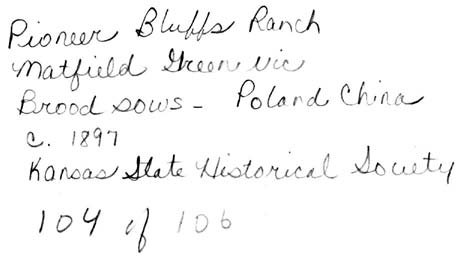 Pioneer Bluffs Ranch
Matfield Green vic
Brood sows - Poland China
c. 1897
Kansas State Historical Society
104 of 106